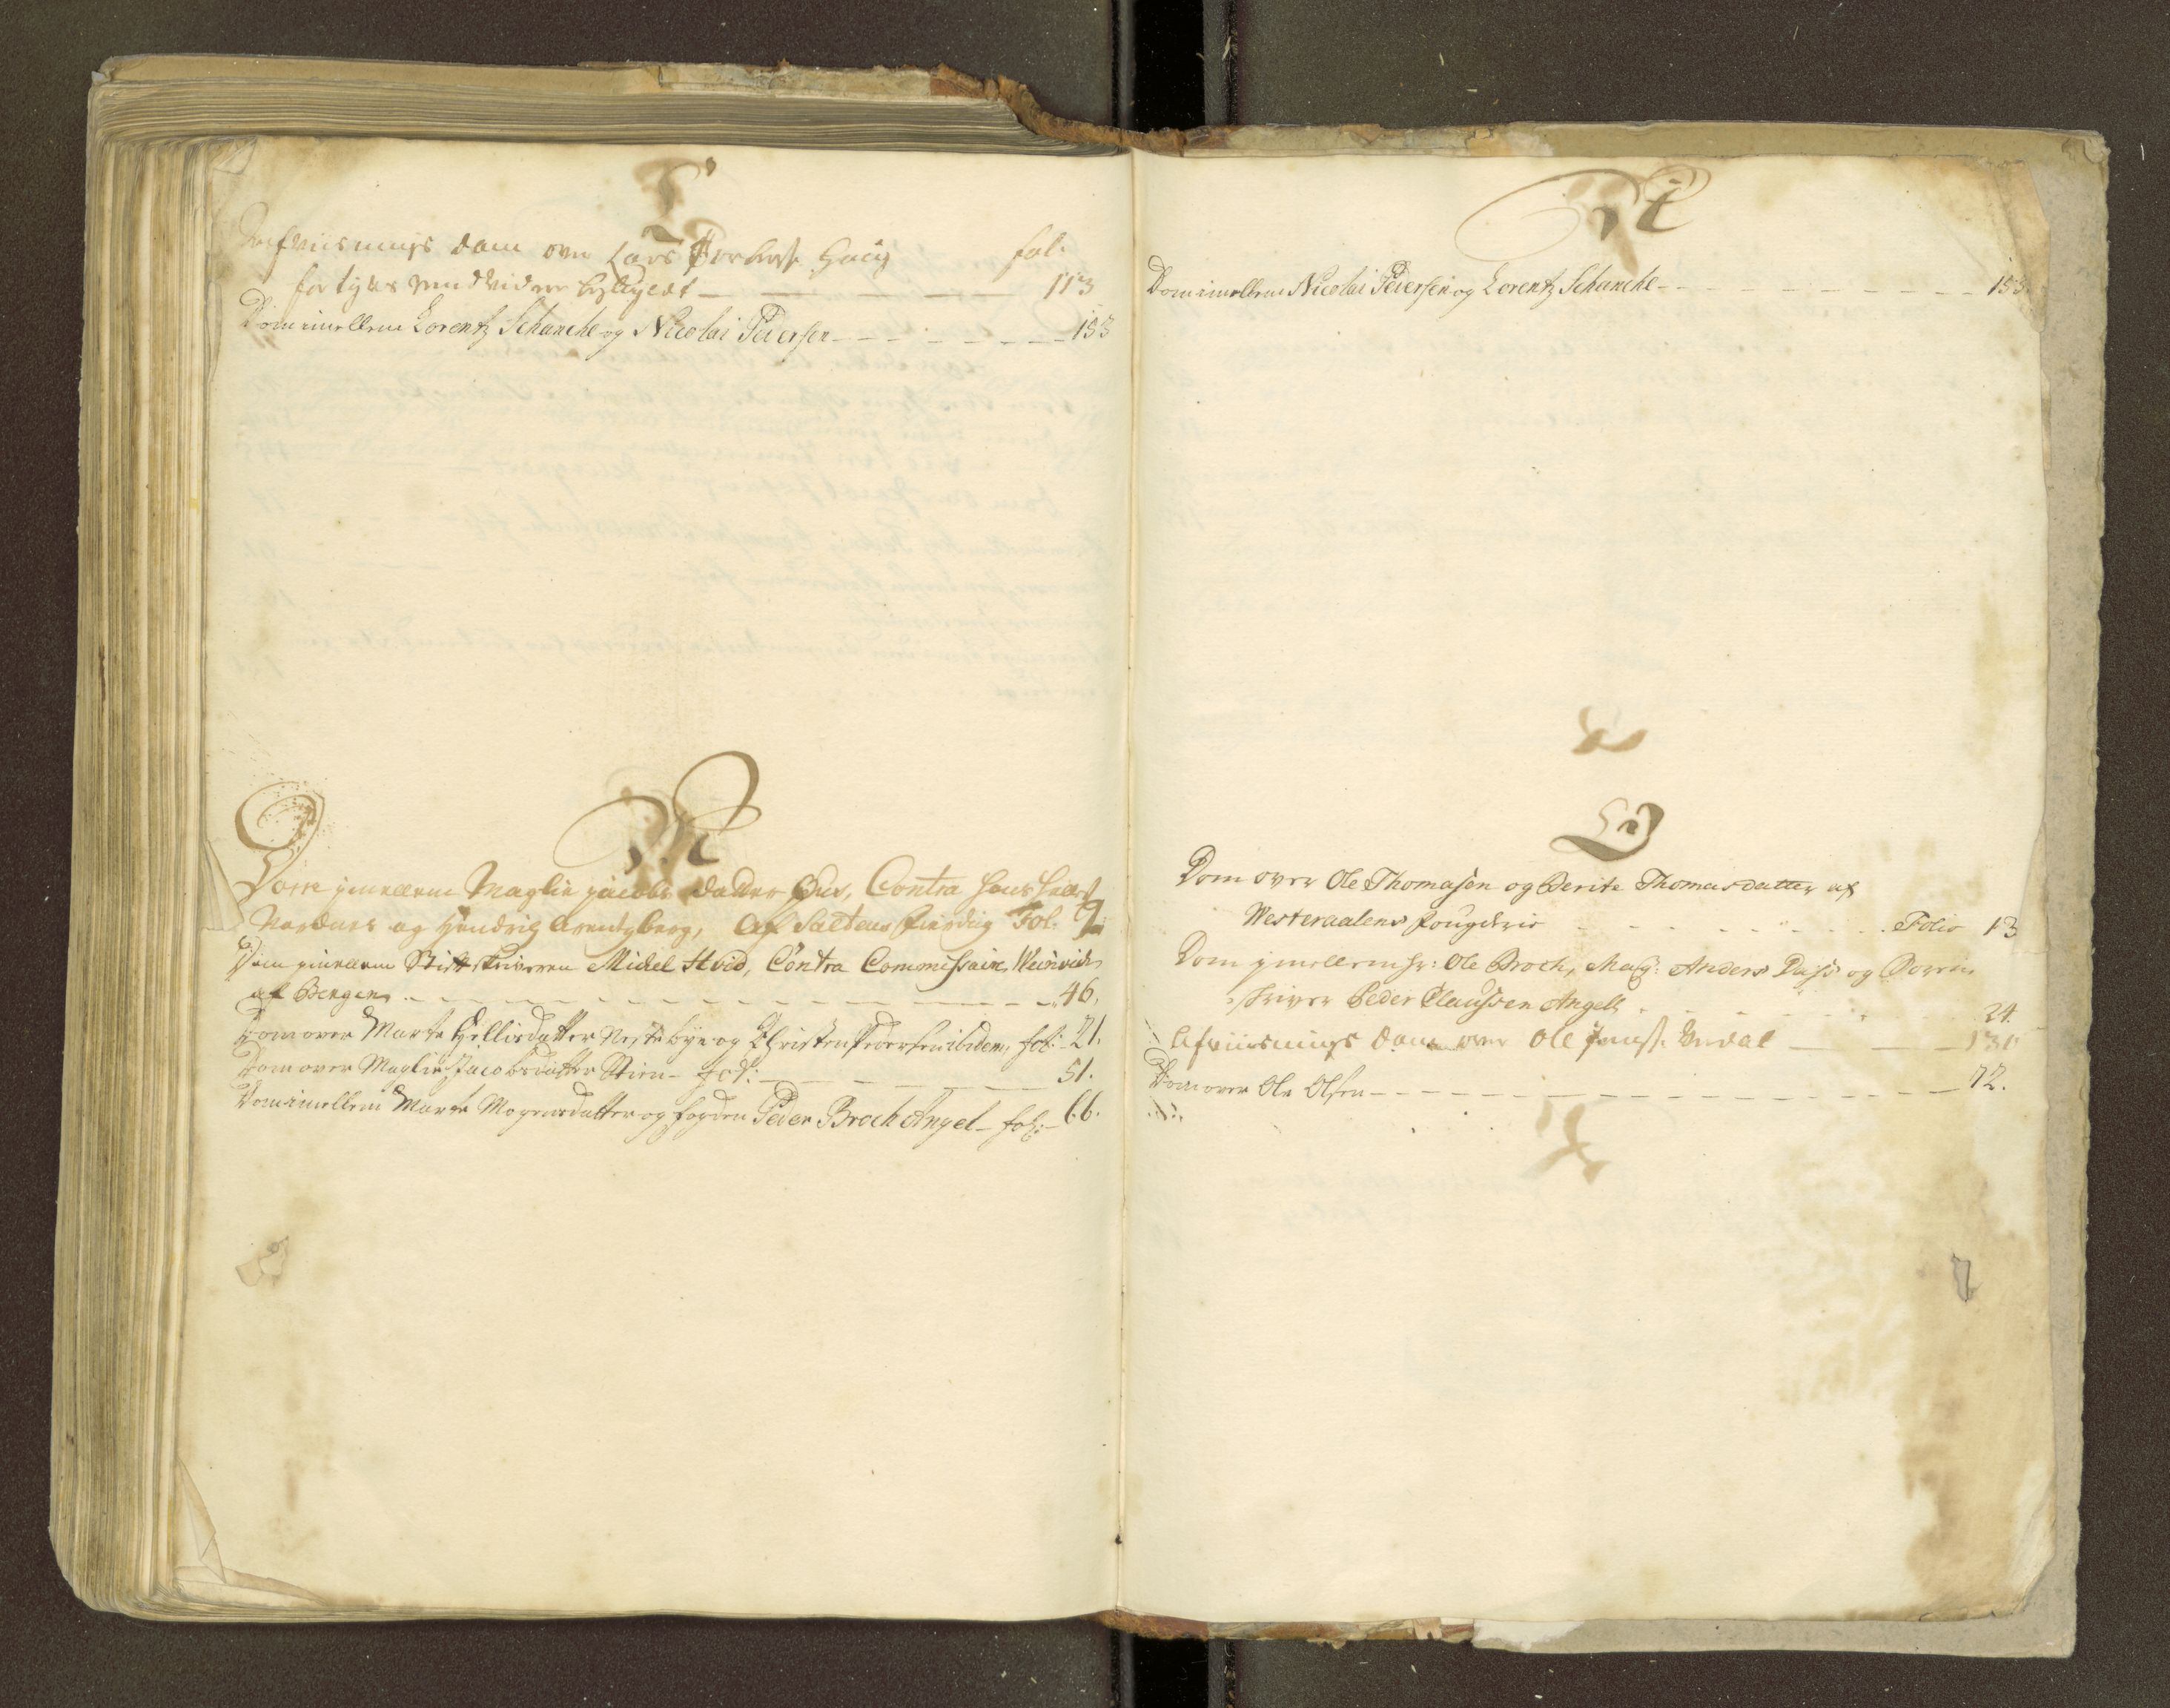 L
Afviisnings Dom over Lars fol.
for 113
Dom imellem Lorentz Schanche og Nicolai Pedersen 153
M
Dom imellem Maglie Jacobs datter Hus, Contra Hans
Nordnes og Hendrig Arentzberg, Af Saltens Fierding Fol. 7
Dom imellem Stiftskriveren Mickel Hvid, Contra Commissaire Weinwich
af Bergen 46.
Dom over Marte Hellisdatter Nestebye og Christen Pedersen ibidem, fol: 21.
Dom over Maglie Jacobsdatter Stien fol: 51.
Dom imellem Marte Mogensdatter og fogden Peder Broch Angel fol: 66.
N
Dom imellem Nicolai Pedersen og Lorentz Schanche 153
O
Dom over Ole Thomasen og Berite Thomasdatter af
Westeraalens fougderie Folio 13
Dom imellem Hr: Ole Broch, Mag: Anders Dass og Soren-
skriver Peder Claussen Angell 24.
Afviisnings Dom over Ole Jenss. 130
Dom over Ole Olsen 72.